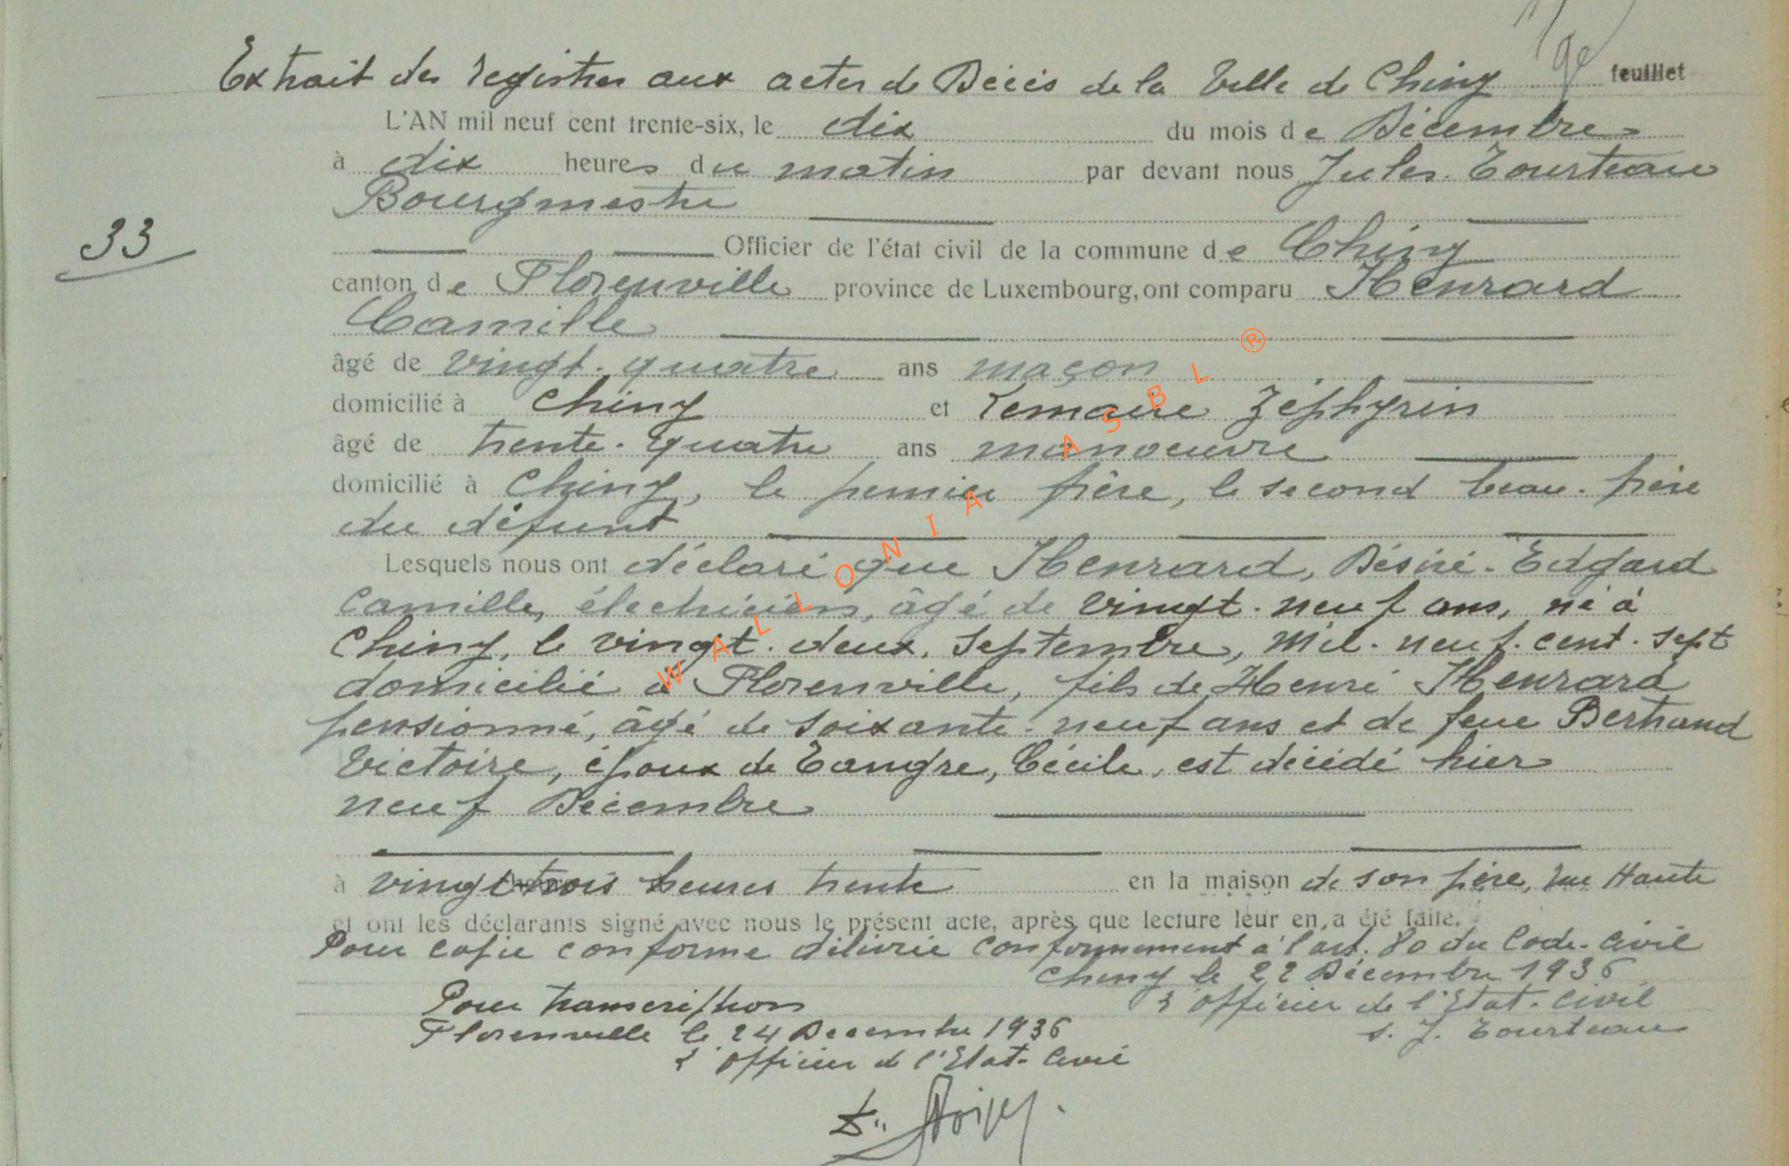 9e feuillet
Extrait des registres aux actes de Décès de la Ville de Chiny
L'AN mil neuf cent trente-six, le dix du mois de Décembre
à dix heures du matin par devant nous Jules Tourteau
Bourgmestre
33
Officier de l'état civil de la commune de Chiny
canton de Florenville province de Luxembourg, ont comparu Henrard
Camille
âgé de vingt-quatre ans maçon
domicilié à Chiny et Lemaire Zéphyrin
âgé de trente-quatre ans manoeuvre
domicilié à Chiny, le premier frère, le second beau-frère
du défunt
Lesquels nous ont déclaré que Henrard, Désiré-Edgard
Camille, électricien, âgé de vingt-neuf ans, né à
Chiny, le vingt-deux, Septembre, mil-neuf-cent-sept
domicilié à Florenville, fils de Henri Henrard
pensionné, âgé de soixante-neuf ans et de feue Bertrand
Victoire, époux de Tangre, Cécile, est décédé hier
neuf Décembre
à vingt-trois heures trente en la maison de son père, rue Haute
et ont les déclarants signé avec nous le présent acte, après que lecture leur en a été faite.
Pour copie conforme délivrée conformément à l'art. 80 du Code-Civil
Chiny le 22 Décembre 1936
Pour transcription L'officier de l'Etat-Civil
Florenville le 24 Decembre 1936 s. J. Tourteau
L'officier de l'Etat-Civil
WALLONIA ASBL ®